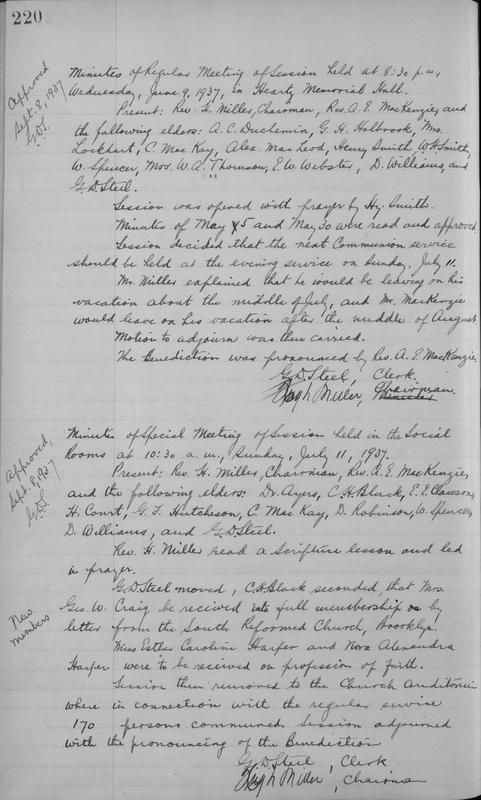 220
Approved
Sept. 8, 1937
G.D.S.
Minutes of Regular Meeting of Session held at 8:30 p.m.,
Wednesday, June 9, 1937, in Hearty Memorial Hall.
Present: Rev. H. Miller, Chairman, Rev. A. E. MacKenzie, and
the following elders: A. C. Duchemin, G. H. Holbrook, Mrs.
Locklart, C. MacKay, Alex. MacLeod, Henry Smith, W.H. Smith,
W. Spencer, Mrs. W. A. Thomson, E. W. Webster, D. Williams, and
G. D. Steel.
Session was opened with prayer by Hy. Smith.
Minutes of May 5 and May 30 were read and approved
Session decided that the next Communion service
should be held at the evening service on Sunday, July 11.
Mr. Miller explained that he would be leaving on his
vacation about the middle of July, and Mr. MacKenzie
would leave on his vacation after the middle of August.
Motion to adjourn was then carried.
The Benediction was pronounced by Rev. A. E. MacKenzie
G. D. Steel, Clerk.
Hugh Miller, Chairman.
Approved,
Sept. 8, 1937
G.D.S.
Minutes of Special Meeting of Session held in the Social
Rooms at 10:30 a.m., Sunday, July 11, 1937.
Present: Rev. H. Miller, Chairman, Rev. A. E. MacKenzie,
and the following elders: Dr. Ayers, C. H. Black, E. E. Clawson,
H. Court, G. F. Hutcheson, C. MacKay, D. Robinson, W. Spencer,
D. Williams, and G. D. Steel.
Rev. H. Miller read a Scripture lesson and led
in prayer.
New
members
G. D. Steel moved, C. H. Black seconded, that Mrs.
Geo. W. Craig be received into full membership by
letter from the South Reformed Church, Brooklyn.
Miss Esther Caroline Harper and Nora Alexandra
Harper were to be received on profession of faith.
Session then removed to the Church Auditorium
where in connection with the regular service
170 persons communed. Session adjourned
with the pronouncing of the Benediction
G. D. Steel, Clerk
Hugh Miller, Chairman